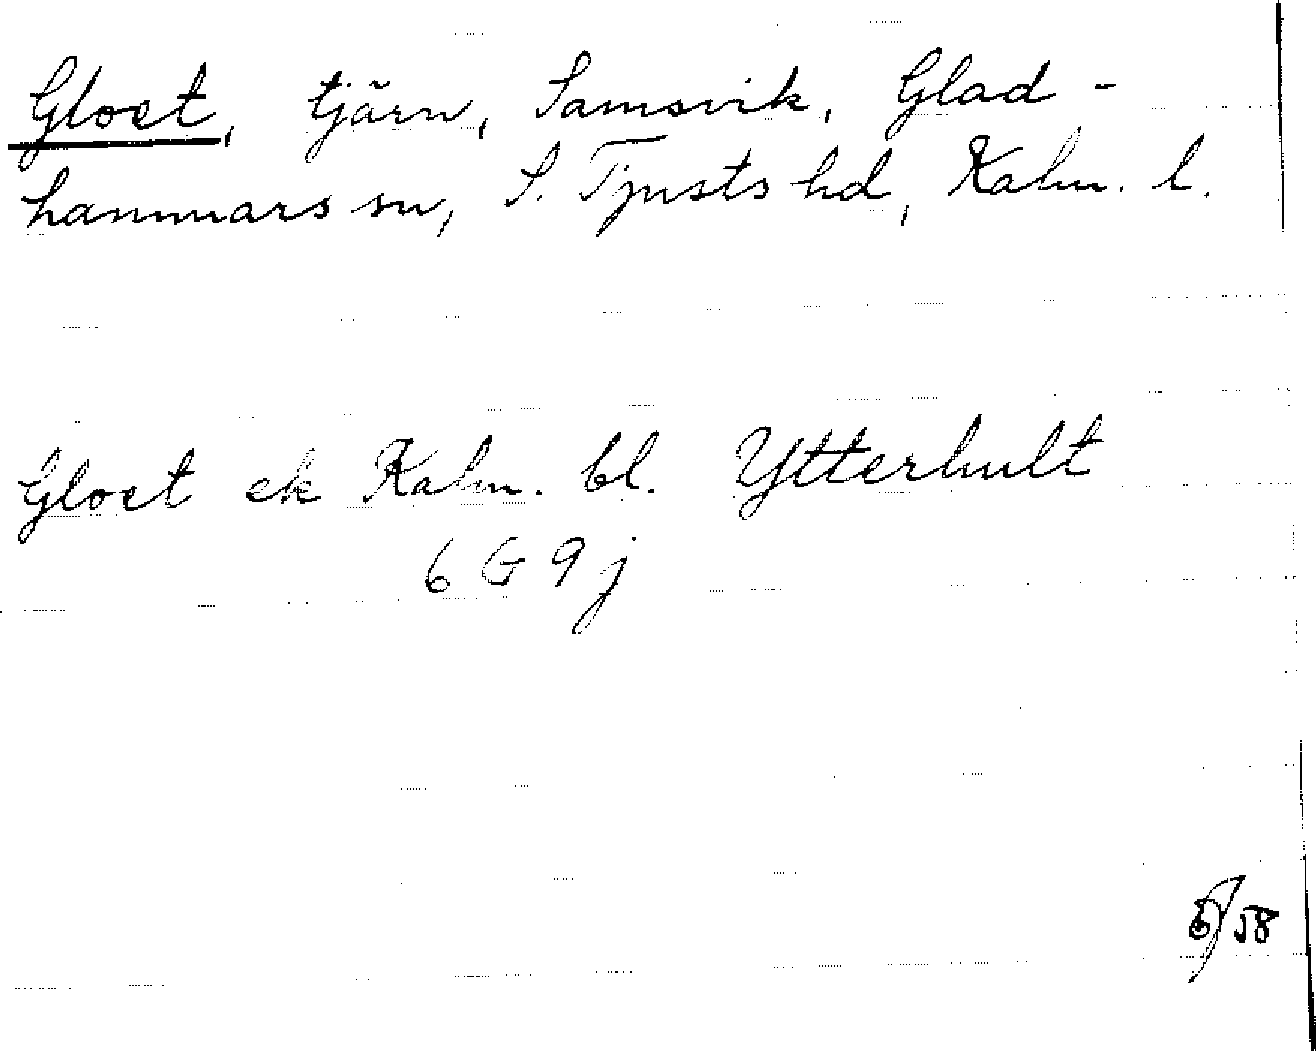 Gloet, tjärn, Samsvik, Glad-
hammars sn, S. Tjusts hd, Kalm. l.
Gloet ek Kalm. bl. Ytterhult
6 G 9 j
/58